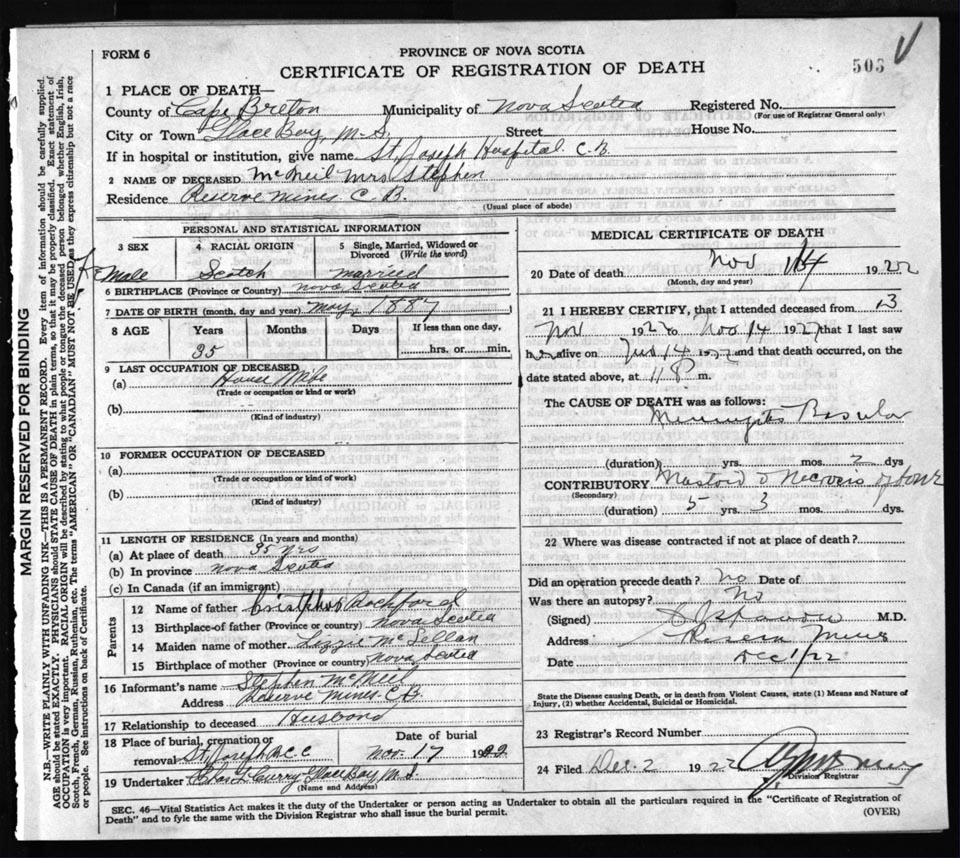 FORM 6
PROVINCE OF NOVA SCOTIA
CERTIFICATE OF REGISTRATION OF DEATH
503
1 PLACE OF DEATH—
County of Cape Breton Municipality of Nova Scotia Registered No.
(For use of Registrar General only)
City or Town Glace Bay, N.S. Street House No.
If in hospital or institution, give name St. Joseph Hospital C.B.
2 NAME OF DECEASED McNeil Mrs Stephen
Residence Reserve Mines C.B.
(Usual place of abode)
PERSONAL AND STATISTICAL INFORMATION
3 SEX 4 RACIAL ORIGIN 5 Single, Married, Widowed or Divorced (Write the word)
Fe Male Scotch married
6 BIRTHPLACE (Province or Country) Nova Scotia
7 DATE OF BIRTH (month, day and year) May, 1887
8 AGE Years Months Days If less than one day,
35 hrs. or min.
9 LAST OCCUPATION OF DECEASED
(a) House Wife
(Trade or occupation or kind of work)
(b)
(Kind of industry)
10 FORMER OCCUPATION OF DECEASED
(a)
(Trade or occupation or kind of work)
(b)
(Kind of industry)
11 LENGTH OF RESIDENCE (In years and months)
(a) At place of death 35 yrs
(b) In province Nova Scotia
(c) In Canada (if an immigrant)
Parents
12 Name of father Rochford
13 Birthplace of father (Province or country) Nova Scotia
14 Maiden name of mother Lizzie McLellan
15 Birthplace of mother (Province or country) Nova Scotia
16 Informant's name Stephen McNeil
Address Reserve Mines. C.B.
17 Relationship to deceased Husband
18 Place of burial, cremation or removal St. Josephs R.C.C Date of burial Nov. 17 1922
19 Undertaker Chas L Curry Glace Bay, N.S.
(Name and Address)
MEDICAL CERTIFICATE OF DEATH
20 Date of death Nov 14 1922
(Month, day and year)
21 I HEREBY CERTIFY, that I attended deceased from 13
Nov 1922 to Nov 14 1922 that I last saw
her alive on 14 1922 and that death occurred, on the
date stated above, at 11 P. m.
The CAUSE OF DEATH was as follows:
Meningitis Basular
(duration) yrs. mos. 2 dys
CONTRIBUTORY Mastoid & Necrosis of bone
(Secondary)
(duration) 5 yrs. 3 mos. dys.
22 Where was disease contracted if not at place of death?
Did an operation precede death? No Date of
Was there an autopsy? No
(Signed) M.D.
Address Reserve Mines
Date Dec 1/22
State the Disease causing Death, or in death from Violent Causes, state (1) Means and Nature of Injury, (2) whether Accidental, Suicidal or Homicidal.
23 Registrar's Record Number
24 Filed Dec. 2 1922
Division Registrar
SEC. 46—Vital Statistics Act makes it the duty of the Undertaker or person acting as Undertaker to obtain all the particulars required in the "Certificate of Registration of
Death" and to fyle the same with the Division Registrar who shall issue the burial permit.
(OVER)
MARGIN RESERVED FOR BINDING
N.B.—WRITE PLAINLY WITH UNFADING INK—THIS IS A PERMANENT RECORD. Every item of information should be carefully supplied.
AGE should be stated EXACTLY. PHYSICIANS should STATE CAUSE OF DEATH in plain terms, so that it may be properly classified. Exact statement of
OCCUPATION is very important. RACIAL ORIGIN will be described by stating to what people or tongue the deceased person belonged whether English, Irish,
Scotch, French, German, Russian, Ruthenian, etc. The terms "AMERICAN" OR "CANADIAN" MUST NOT BE USED as they express citizenship but not a race
or people. See instructions on back of Certificate.